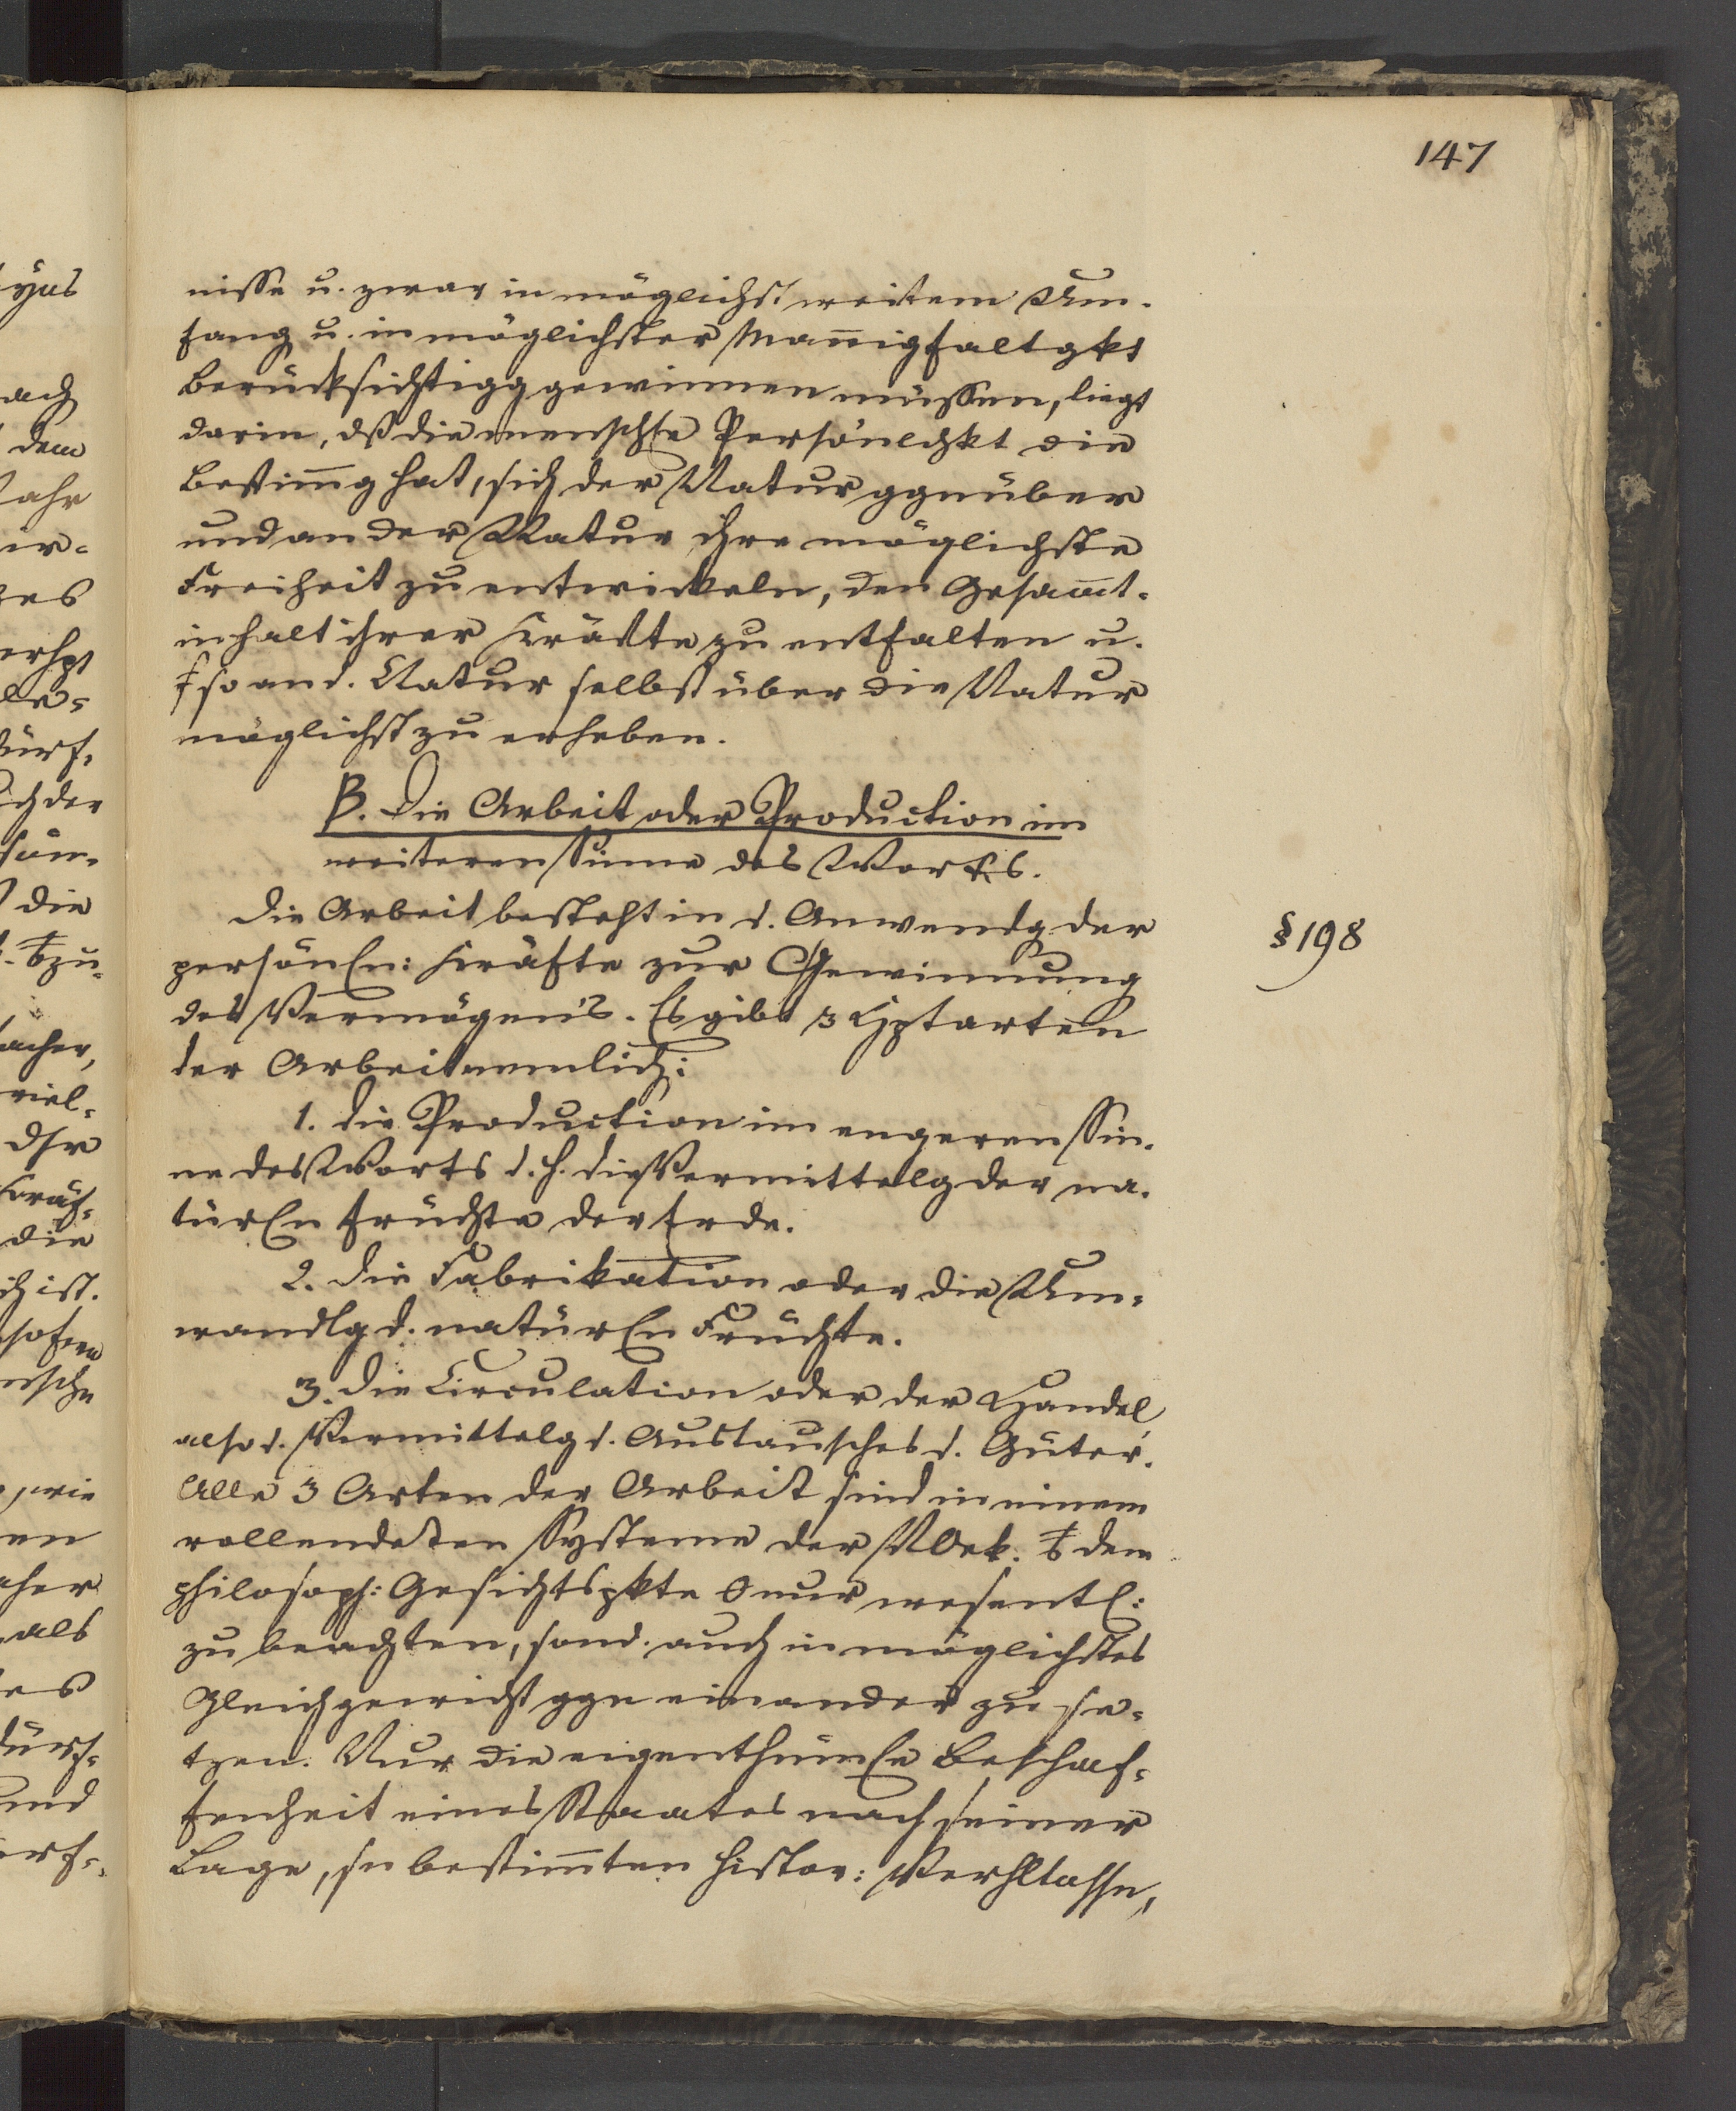 147
nisse u. zwar in möglichst weitem Um-
fang u. in möglichster Mannigfaltgkt
Berücksichtigg gewinnen müssen, liegt
darin, dß die menschle Persönlchkt die
Bestimg hat, sich der Natur ggenüber
und an der Natur ihre möglichste
Freiheit zu entwickeln, den Gesamt-
inhalt ihrer Kräfte zu entfalten u.
so an d. Natur selbst über die Natur
möglichst zu erheben.
B. Die Arbeit oder Production im
weiteren Sinne des Wortes.
Die Arbeit besteht in d. Anwendg der
§ 198
persönln: Kräfte zur Gewinnung
des Vermögens. Es gibt 3 Hptarten
der Arbeit nemlich:
1. Die Production im engeren Sin-
ne des Worts d. h. die Vermittelg der na-
türln Früchte der Erde.
2. Die Fabrikation oder die Um-
wandlg d. natürln Früchte.
3. Die Circulation oder der Handel
also d. Vermittelg d. Austausches d. Güter.
Alle 3 Arten der Arbeit sind in einem
vollendeten Systeme der NOek. dem
philosoph: Gesichtspkte nur wesentl:
zu beachten, sond. auch in möglichstes
Gleichgewicht ggn einander zu se-
tzen. Nur die eigenthümle Beschaf-
fenheit eines Staates nach seiner
Lage, sn bestimten histor: Verhltnsse,